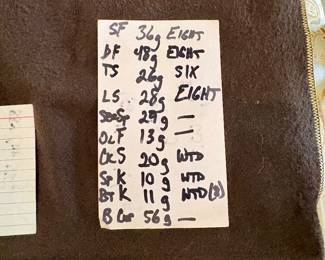 SF 36g EIGHT
DF 48g EIGHT
TS 26g SIX
LS 28g EIGHT
29g —
OLF 13g —
20g WTD
Sp K 10g WTD
BT K 11g WTD(3)
B 56g —